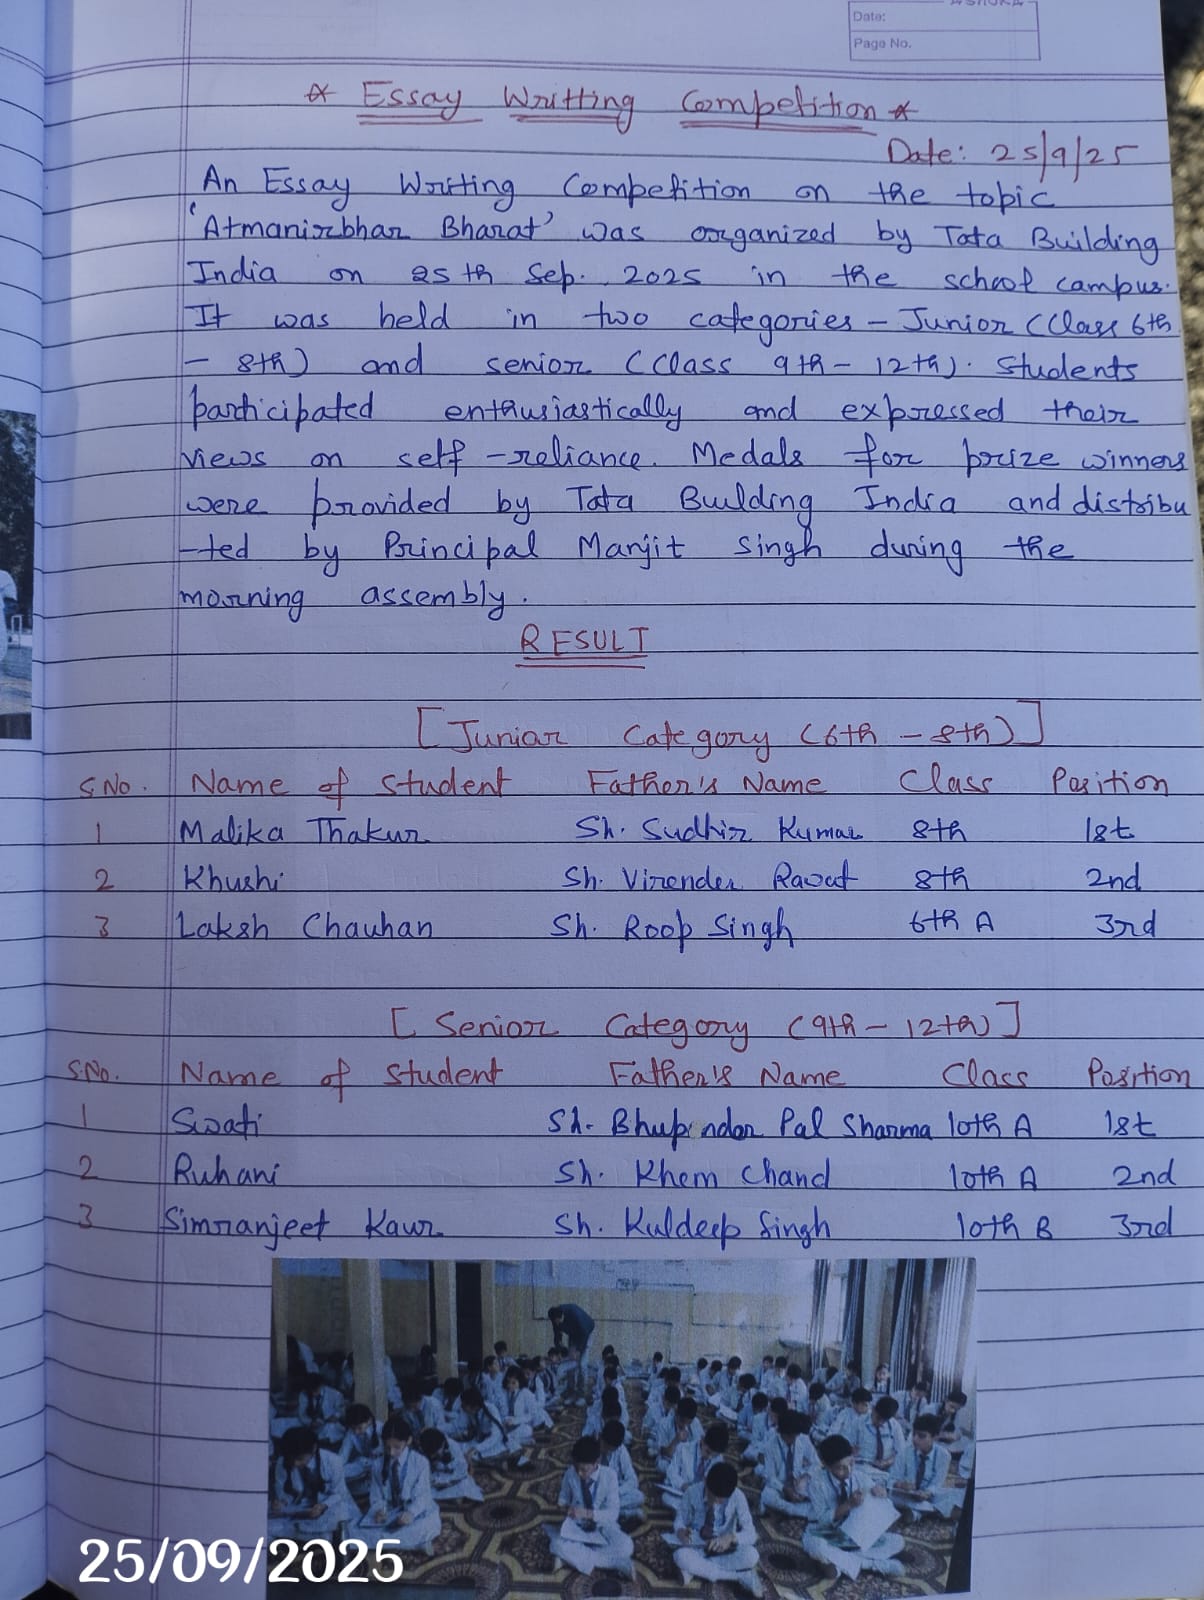 Date:
Page No.
☆ Essay Writting Competition ☆
Date: 25/9/25
An Essay Writing Competition on the topic
'Atmanirbhar Bharat' was organized by Tata Building
India on 25th Sep. 2025 in the school campus.
It was held in two categories – Junior (Class 6th
– 8th) and senior (Class 9th – 12th). Students
participated enthusiastically and expressed their
views on self-reliance. Medals for prize winners
were provided by Tata Building India and distribu
-ted by Principal Manjit Singh during the
morning assembly.
RESULT
[Junior Category (6th – 8th)]
S.No. Name of Student Father's Name Class Position
1 Malika Thakur Sh. Sudhir Kumar 8th 1st
2 Khushi Sh. Virender Rawat 8th 2nd
3 Laksh Chauhan Sh. Roop Singh 6th A 3rd
[Senior Category (9th – 12th)]
S.No. Name of Student Father's Name Class Position
1 Swati Sh. Bhupender Pal Sharma 10th A 1st
2 Ruhani Sh. Khem Chand 10th A 2nd
3 Simranjeet Kaur Sh. Kuldeep Singh 10th B 3rd
25/09/2025